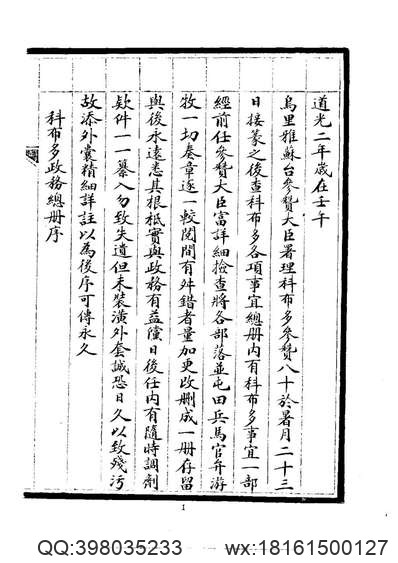 道光二年歲在壬午
烏里雅蘇台參贊大臣署理科布多參贊八十於暑月二十三
日接篆之後查科布多各項事宜總册內有科布多事宜一部
經前任參贊大臣富詳細撿查將各部落並屯田兵馬官弁游
牧一切奏章逐一較閱間有舛錯者量加更改删成一册存留
與後永遠悉其根柢實與政務有益隨日後任內有隨時調劑
欵件一一纂入勿致失遺但未裝潢外套誠恐日久以致殘污
故添外囊精細詳註以為後序可傳永久
科布多政務總册序
1
QQ:398035233 wx:18161500127